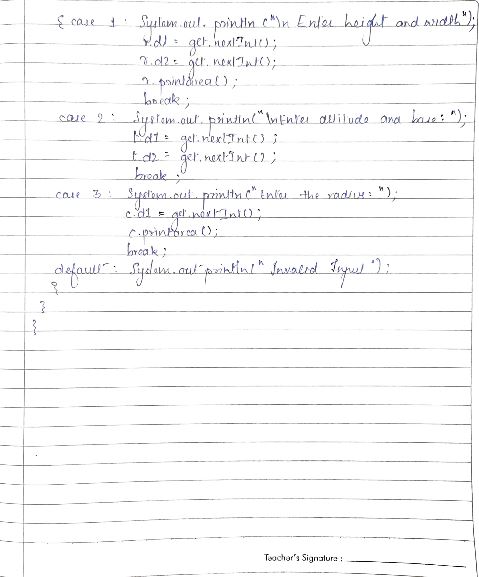 { case 1 : System.out.println("\n Enter height and width");
r.d1 = get.nextInt();
r.d2 = get.nextInt();
r.printarea();
break;
case 2 : System.out.println("\nEnter altitude and base: ");
t.d1 = get.nextInt();
t.d2 = get.nextInt();
break;
case 3 : System.out.println("Enter the radius: ");
c.d1 = get.nextInt();
c.printarea();
break;
default : System.out.println(" Invalid Input ");
}
}
}
Teacher's Signature :